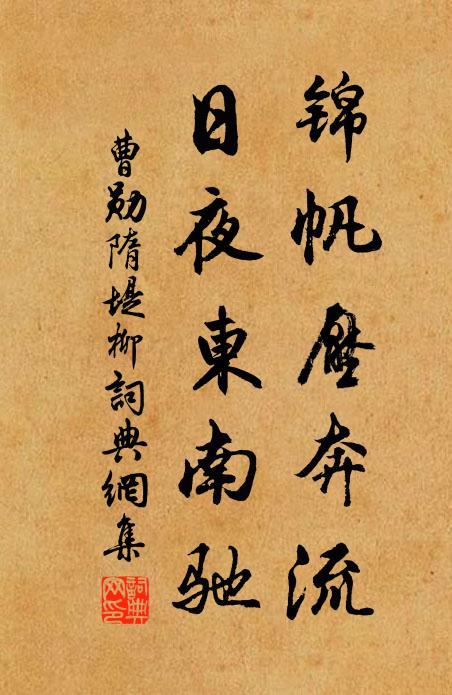 锦帆壓奔流
日夜東南驰
曹勋隋堤柳詞典網集
詞典网印